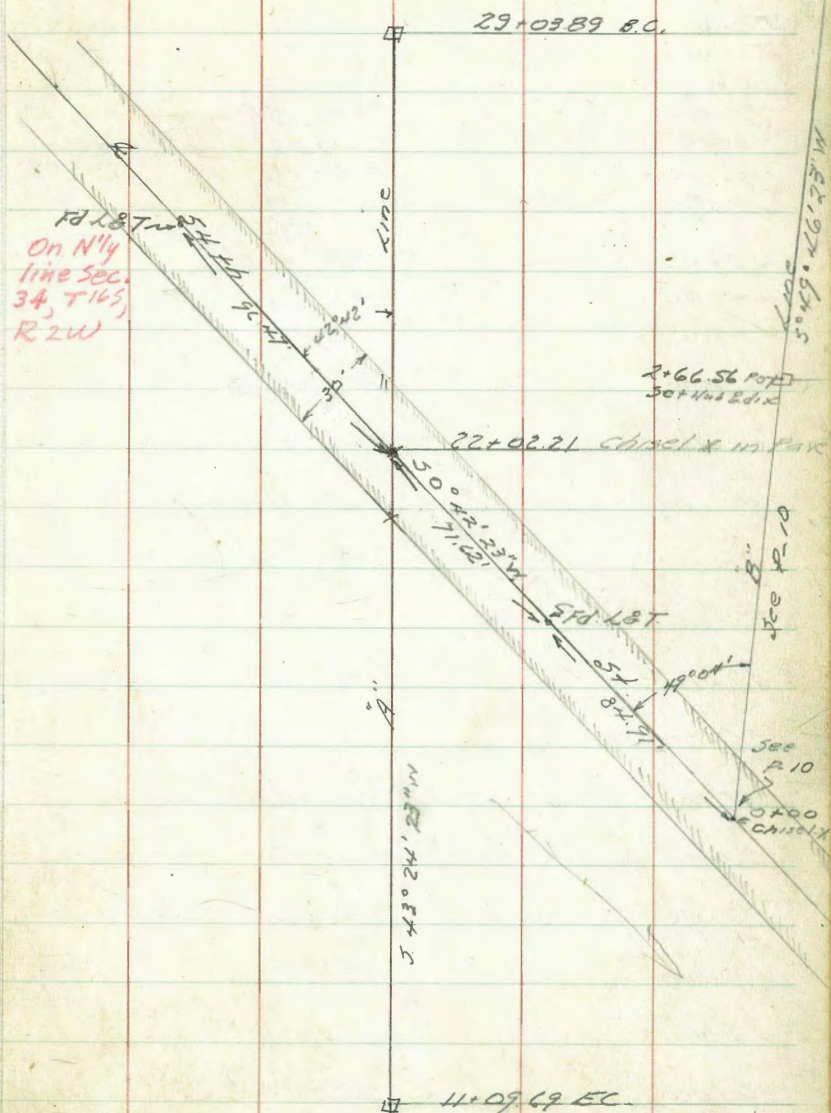 29+03.89 B.C.
Line
Fd L&T
On N'ly
line Sec.
34, T16S,
R2W
54th
96.47
42°42'
30'
Line
S 49° 46' 23" W
2+66.56 POT
Set Hub & disc
22+02.21 Chisel X in Pave
S 0° 42' 23" W
71.62'
Fd L&T
"B"
See P-10
St.
84.91
49°04'
"A"
See
P-10
0+00
Chisel X
S 43° 24' 23" W
11+09.69 EC.